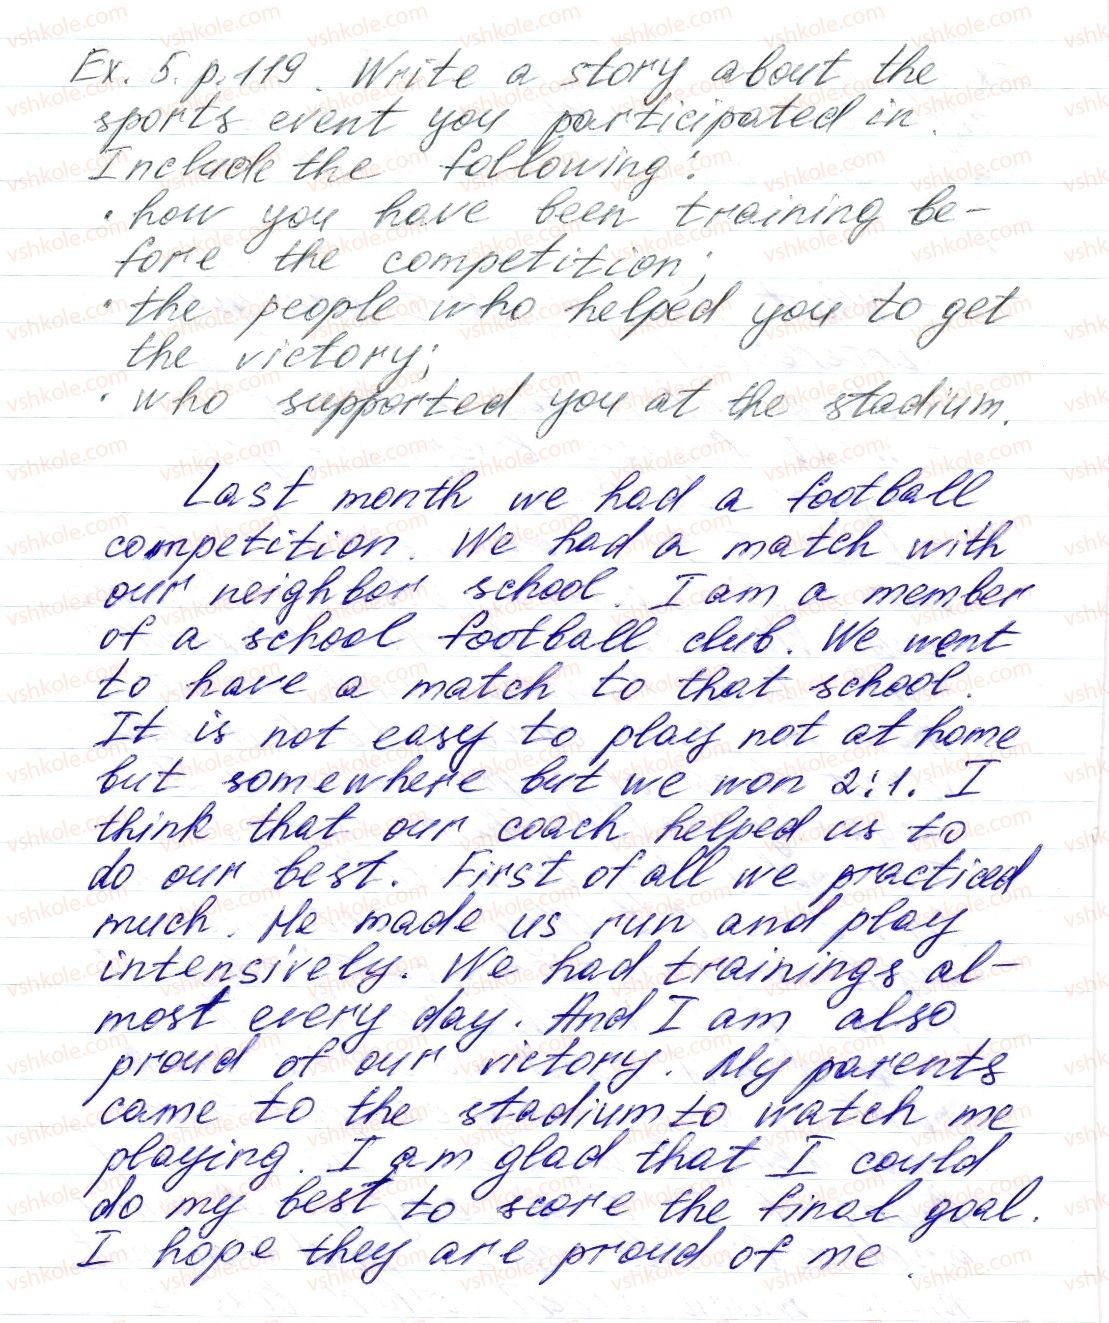 Ex. 5. p. 119. Write a story about the
sports event you participated in.
Include the following:
• how you have been training be-
fore the competition;
• the people who helped you to get
the victory;
• who supported you at the stadium.
Last month we had a football
competition. We had a match with
our neighbor school. I am a member
of a school football club. We went
to have a match to that school.
It is not easy to play not at home
but somewhere but we won 2:1. I
think that our coach helped us to
do our best. First of all we practiced
much. He made us run and play
intensively. We had trainings al-
most every day. And I am also
proud of our victory. My parents
came to the stadium to watch me
playing. I am glad that I could
do my best to score the final goal.
I hope they are proud of me.